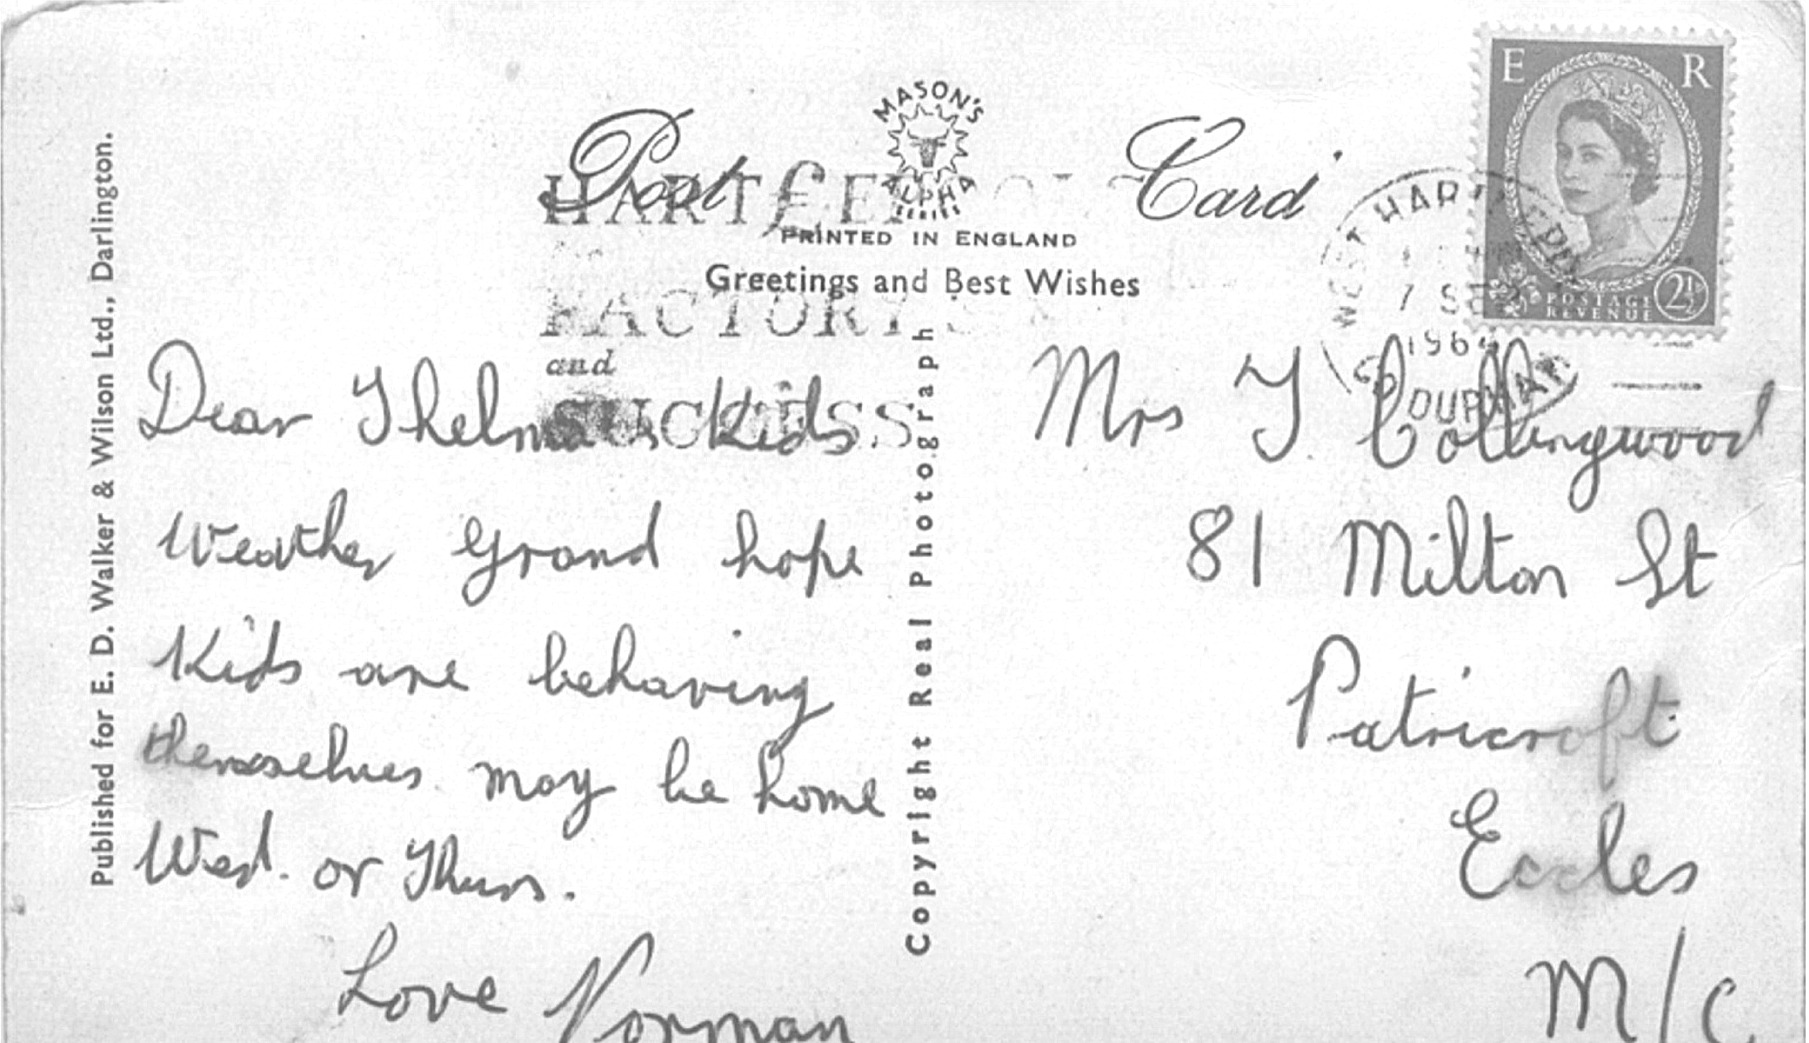 Published for E. D. Walker & Wilson Ltd., Darlington.
Post Card
MASON'S
ALPHA
SERIES
PRINTED IN ENGLAND
Greetings and Best Wishes
HARTLEPOOLS
FACTORY
and
SUCCESS
WEST HARTLEPOOL
7 SEP
196
CO DURHAM
E R
POSTAGE
REVENUE
2½
Copyright Real Photograph
Dear Thelma & Kids
Weather Grand hope
Kids are behaving
themselves may be home
Wed. or Thurs.
Love Norman
Mrs T Collingwood
81 Milton St
Patricroft
Eccles
M/C